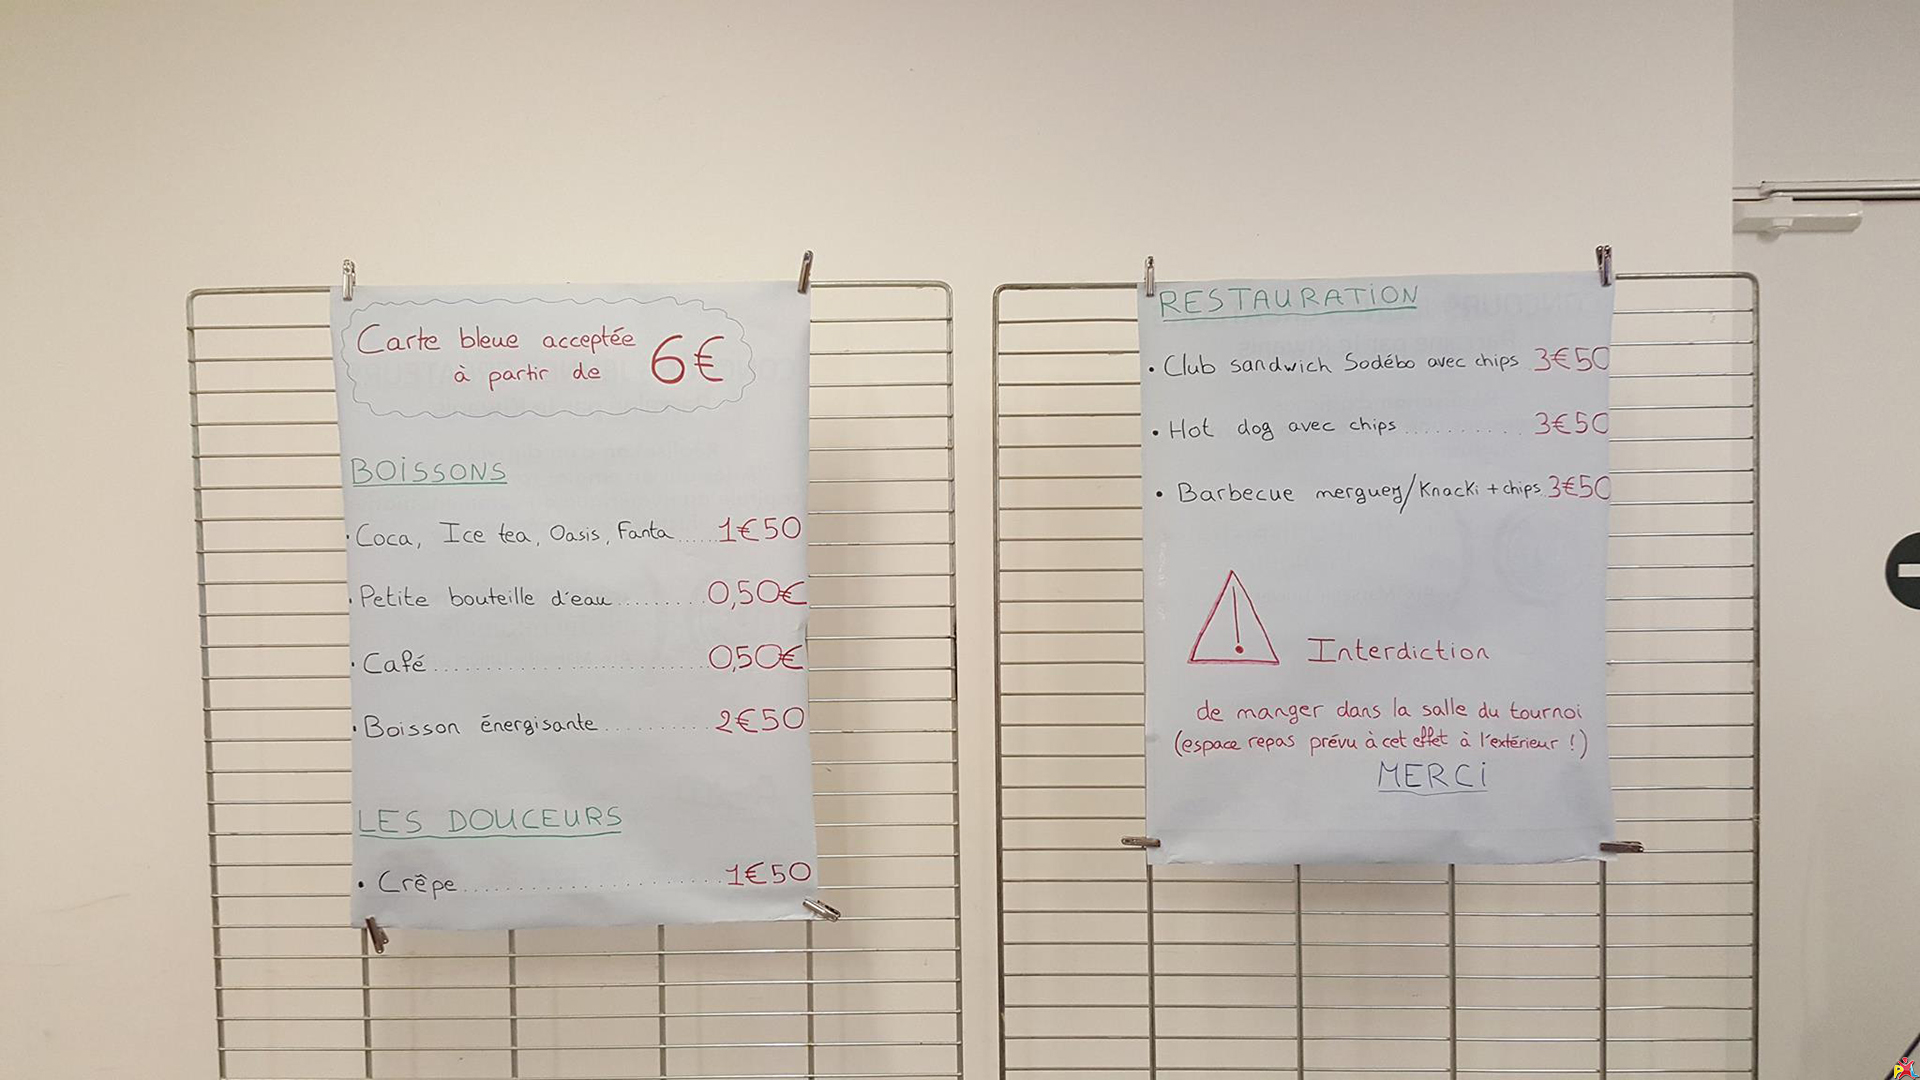 Carte bleue acceptée
à partir de 6€
BOISSONS
• Coca, Ice tea, Oasis, Fanta..... 1€50
• Petite bouteille d'eau......... 0,50€
• Café........................... 0,50€
• Boisson énergisante........... 2€50
LES DOUCEURS
• Crêpe.......................... 1€50
RESTAURATION
• Club sandwich Sodébo avec chips 3€50
• Hot dog avec chips.......... 3€50
• Barbecue merguez/Knacki + chips 3€50
Interdiction
de manger dans la salle du tournoi
(espace repas prévu à cet effet à l'extérieur !)
MERCI